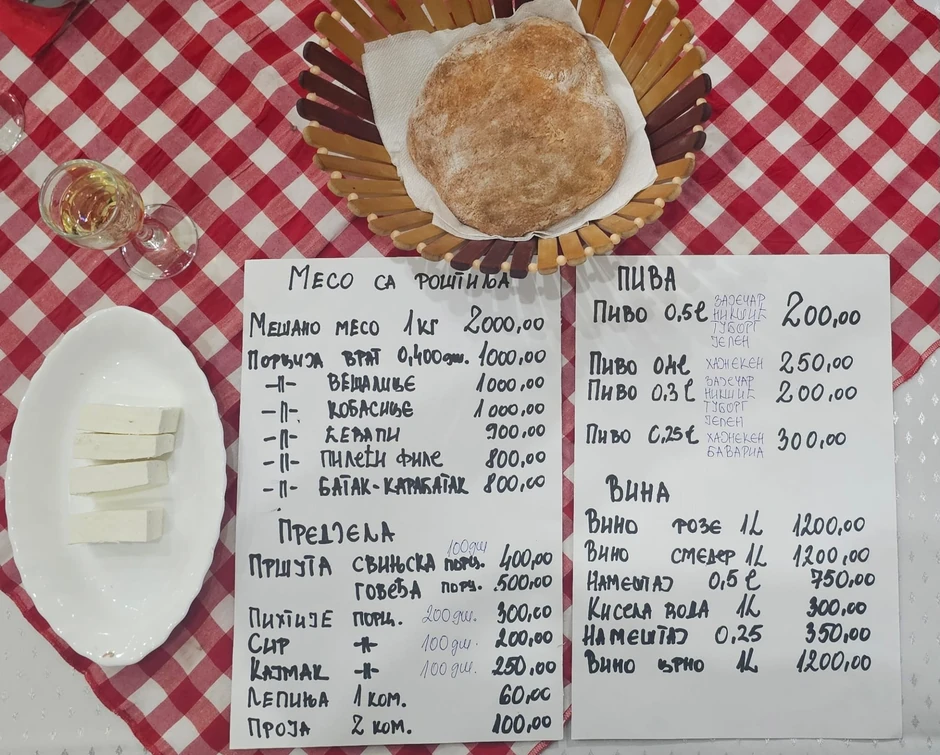 МЕСО СА РОШТИЉА
МЕШАНО МЕСО 1 КГ 2000,00
ПОРЦИЈА ВРАТ 0,400 gm. 1000,00
-II- ВЕШАЛИЦЕ 1000,00
-II- КОБАСИЦЕ 1000,00
-II- ЋЕВАПИ 900,00
-II- ПИЛЕЋИ ФИЛЕ 800,00
-II- БАТАК-КАРАБАТАК 800,00
ПРЕДЈЕЛА
100 gm
ПРШУТА СВИЊСКА ПОРЦ. 400,00
ГОВЕЂА ПОРЦ. 500,00
ПИХТИЈЕ ПОРЦ. 200 gm. 300,00
СИР -II- 100 gm. 200,00
КАЈМАК -II- 100 gm. 250,00
ЛЕПИЊА 1 КОМ. 60,00
ПРОЈА 2 КОМ. 100,00
ПИВА
ПИВО 0,5 l ЗАЈЕЧАР 200,00
НИКШИЋ
ТУБОРГ
ЈЕЛЕН
ПИВО 0,4 l ХАЈНЕКЕН 250,00
ПИВО 0,3 l ЗАЈЕЧАР 200,00
НИКШИЋ
ТУБОРГ
ЈЕЛЕН
ПИВО 0,25 l ХАЈНЕКЕН 300,00
БАВАРИА
ВИНА
ВИНО РОЗЕ 1L 1200,00
ВИНО СМЕДЕР 1L 1200,00
НАМЕШТАЈ 0,5 l 750,00
КИСЕЛА ВОДА 1L 300,00
НАМЕШТАЈ 0,25 350,00
ВИНО ЦРНО 1L 1200,00